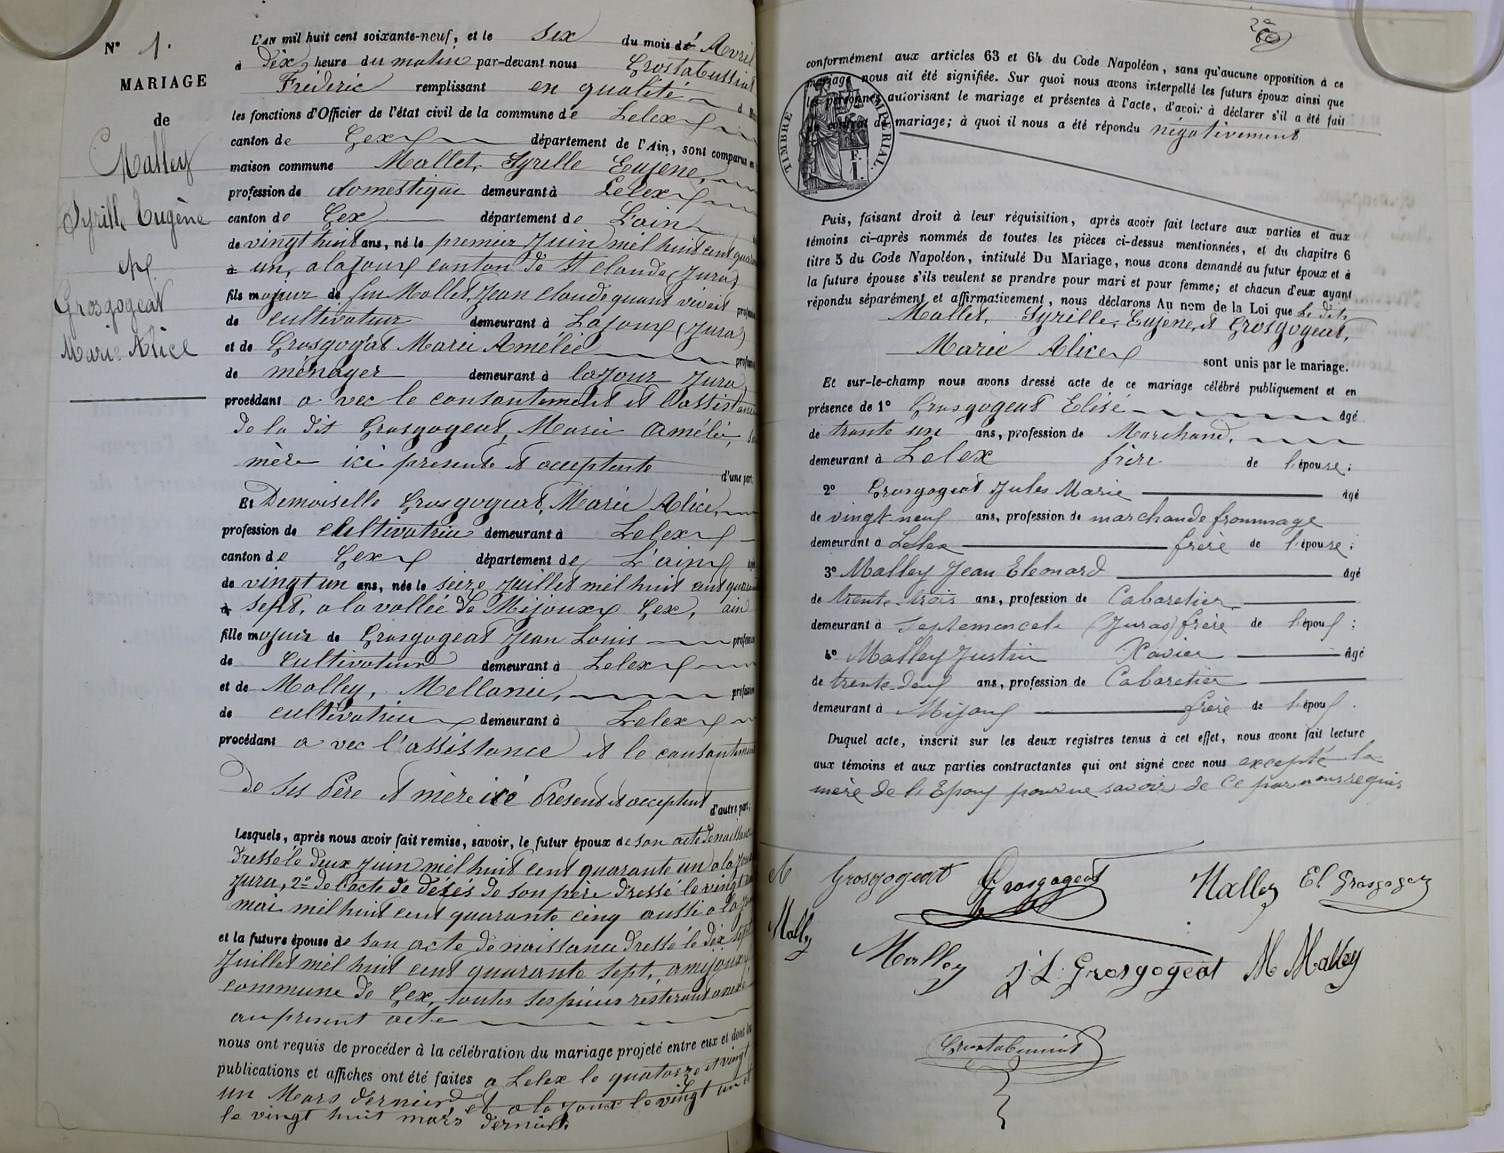 N° 1.
MARIAGE
de
Malley
Syrille Eugène
et
Grosgogeat
Marie Alice
L'AN mil huit cent soixante-neuf, et le six du mois de Avril
à dix heure du matin par-devant nous Grostabussiat
Fréderic remplissant en qualité
les fonctions d'Officier de l'état civil de la commune de Lelex
canton de Gex département de l'Ain, sont comparus en
maison commune Mallet, Syrille Eujene,
profession de domestique demeurant à Lelex
canton de Gex département de L'ain
de vingt huit ans, né le premier Juin mil huit cent quarante
un, a lajoux canton de St claude (Jura)
fils majeur de feu Mallet Jean Claude quant vivait
de cultivateur demeurant à Lajoux (Jura)
et de Grosgogeat Marie Amélie profession
de ménager demeurant à lajoux Jura
procédant a vec le consantement et l'assistance
de la dit Grosgogeat, Marie Amélie, sa
mère ici presente et acceptente d'une part,
Et Demoiselle Grosgogeat, Marie Alice,
profession de cultivatrice demeurant à Lelex
canton de Gex département de L'ain
de vingt un ans, née le seize Juillet mil huit cent quarante
sept, a la vallée de Mijoux Gex, ain
fille majeur de Grosgogeat Jean Louis profession
de Cultivateur demeurant à Lelex
et de Malley, Mellanie, profession
de cultivatrice demeurant à Lelex
procédant a vec l'assistance et le consantement
de ses Père et mère ici Présent et acceptent d'autre part,
Lesquels, après nous avoir fait remise, savoir, le futur époux de son acte de naissance
dresse le deux Juin mil huit cent quarante un a la Joux
Jura, 2° de l'acte de décés de son père dressé le vingt
mai mil huit cent quarante cinq aussi a la Joux
et la future épouse de son acte de naissance dressé le dix sept
Juillet mil huit cent quarante sept, a mijoux
commune de Gex, toutes ses pièces resteront annexé
au présent acte
nous ont requis de procéder à la célébration du mariage projeté entre eux et dont les
publications et affiches ont été faites a Lelex le quatorze et vingt
un Mars dernier et a la Joux le vingt un et
le vingt huit mars dernier.
conformément aux articles 63 et 64 du Code Napoléon, sans qu'aucune opposition à ce
mariage nous ait été signifiée. Sur quoi nous avons interpellé les futurs époux ainsi que
les personnes autorisant le mariage et présentes à l'acte, d'avoir à déclarer s'il a été fait
un contrat de mariage; à quoi il nous a été répondu négativement
TIMBRE IMPÉRIAL.
F.
1.
Puis, faisant droit à leur réquisition, après avoir fait lecture aux parties et aux
témoins ci-après nommés de toutes les pièces ci-dessus mentionnées, et du chapitre 6
titre 5 du Code Napoléon, intitulé Du Mariage, nous avons demandé au futur époux et à
la future épouse s'ils veulent se prendre pour mari et pour femme; et chacun d'eux ayant
répondu séparément et affirmativement, nous déclarons Au nom de la Loi que
Mallet, Syrille, Eujene, et Grosgogeat,
Marie Alice sont unis par le mariage.
Et sur-le-champ nous avons dressé acte de ce mariage célébré publiquement et en
présence de 1° Grosgogeat Elisé âgé
de trante un ans, profession de Marchand,
demeurant à Lelex frère de l'épouse;
2° Grosgogeat Jules Marie âgé
de vingt neuf ans, profession de marchand de frommage
demeurant à Lelex frère de l'épouse;
3° Malley Jean Eleonard âgé
de trente-trois ans, profession de Cabaretier
demeurant à Septemoncel (Juras) frère de l'époux;
4° Malley Justin Xavier âgé
de trente-deux ans, profession de Cabaretier
demeurant à Mijoux frère de l'époux.
Duquel acte, inscrit sur les deux registres tenus à cet effet, nous avons fait lecture
aux témoins et aux parties contractantes qui ont signé avec nous excepté la
mère de l'Epoux pour ne savoir de ce par nous requis
Grosgogeat Grosgogeat Malley El Grosgogeat
Mally Malley J L Grosgogeat M Malley
Grostabussiat